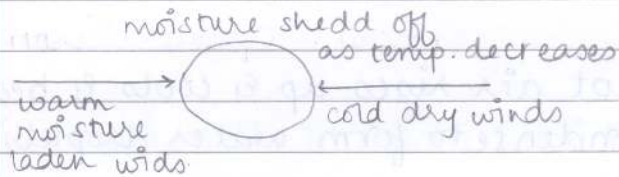 moisture shedd off
as temp. decreases
warm
moisture
laden wids.
cold dry winds